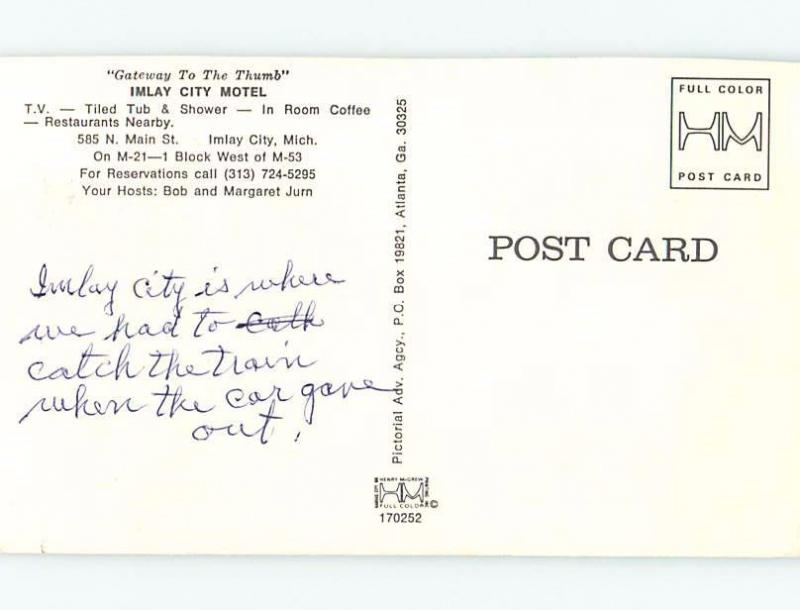 "Gateway To The Thumb"
IMLAY CITY MOTEL
T.V. — Tiled Tub & Shower — In Room Coffee
— Restaurants Nearby.
585 N. Main St. Imlay City, Mich.
On M-21—1 Block West of M-53
For Reservations call (313) 724-5295
Your Hosts: Bob and Margaret Jurn
Imlay City is where
we had to
catch the train
when the car gave
out.
Pictorial Adv. Agcy., P.O. Box 19821, Atlanta, Ga. 30325
HENRY McGREW
HM
FULL COLOR
©
170252
FULL COLOR
HM
POST CARD
POST CARD